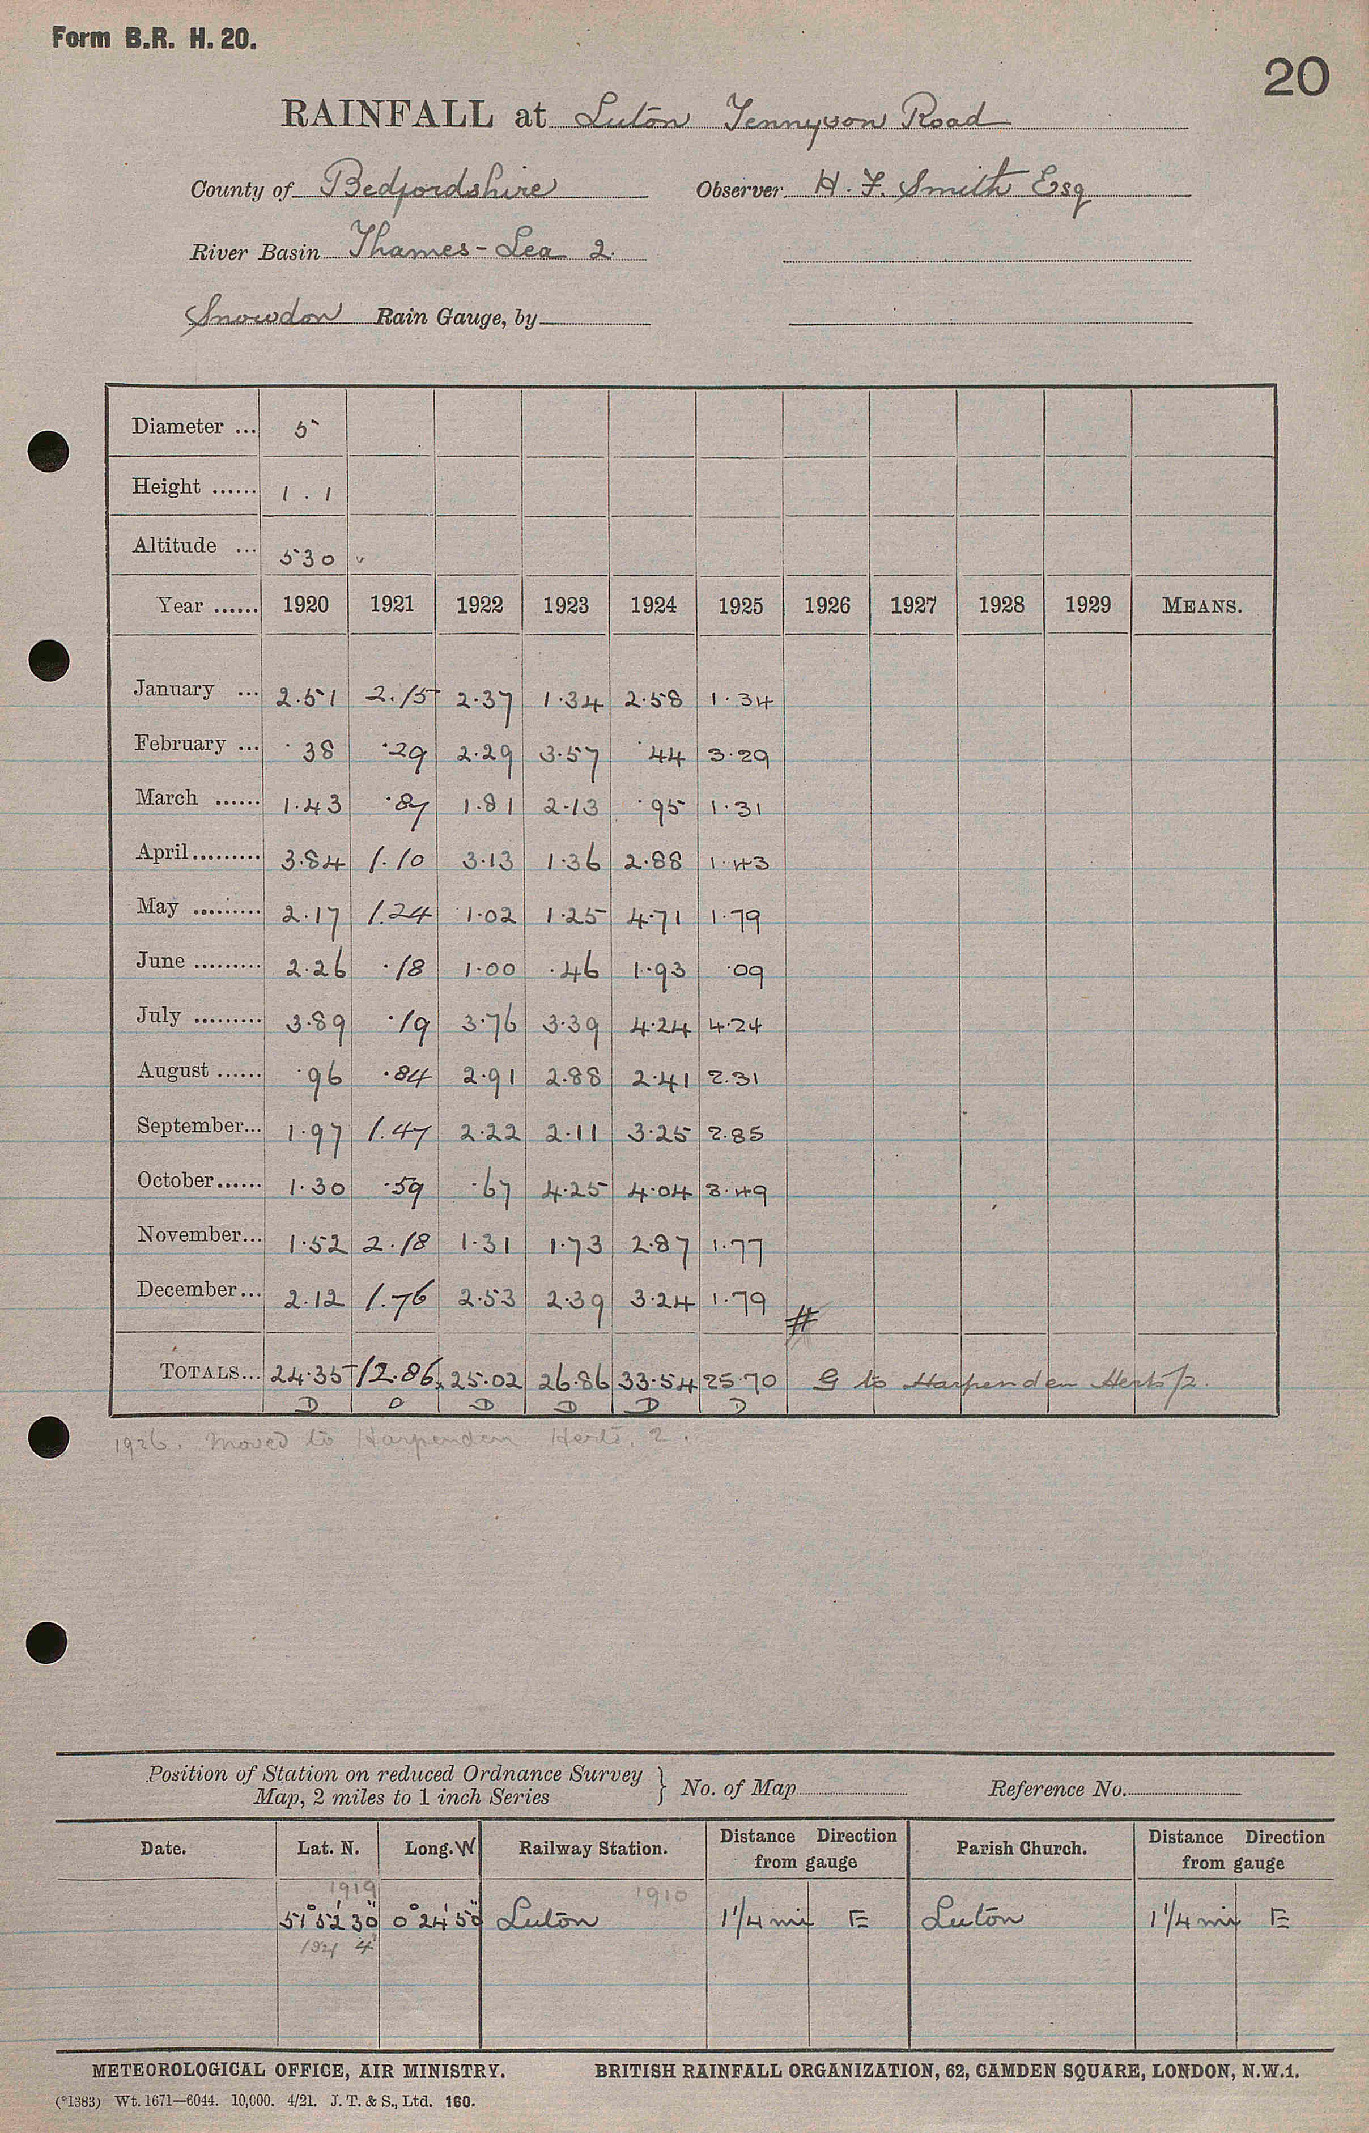 Form B.R. H. 20.
20
RAINFALL at Luton Tennyson Road
County of Bedfordshire Observer H. F. Smith Esq
River Basin Thames - Lea 2.
Snowdon Rain Gauge, by
Diameter ... 5
Height ...... 1 . 1
Altitude ... 530
Year ...... 1920 1921 1922 1923 1924 1925 1926 1927 1928 1929 MEANS.
January ... 2.51 2.15 2.37 1.34 2.58 1.34
February ... .38 .29 2.29 3.57 .44 3.29
March ...... 1.43 .87 1.81 2.13 .95 1.31
April......... 3.84 1.10 3.13 1.36 2.88 1.43
May ......... 2.17 1.24 1.02 1.25 4.71 1.79
June ......... 2.26 .18 1.00 .46 1.93 .09
July ......... 3.89 .19 3.76 3.39 4.24 4.24
August ...... .96 .84 2.91 2.88 2.41 2.31
September... 1.97 1.47 2.22 2.11 3.25 2.85
October...... 1.30 .59 .67 4.25 4.04 3.49
November... 1.52 2.18 1.31 1.73 2.87 1.77
December... 2.12 1.76 2.53 2.39 3.24 1.79 #
TOTALS... 24.35 12.86 25.02 26.86 33.54 25.70 G to Harpenden Herts/2.
D D D D D D
1926. Moved to Harpenden Herts. 2.
Position of Station on reduced Ordnance Survey
Map, 2 miles to 1 inch Series } No. of Map Reference No.
Date. Lat. N. Long. W Railway Station. Distance Direction from gauge Parish Church. Distance Direction from gauge
1919 1910
51° 52' 30" 0° 24' 50" Luton 1 1/4 mi E Luton 1 1/4 mi E
METEOROLOGICAL OFFICE, AIR MINISTRY. BRITISH RAINFALL ORGANIZATION, 62, CAMDEN SQUARE, LONDON, N.W.1.
(*1383) Wt. 1671—6044. 10,000. 4/21. J. T. & S., Ltd. 160.